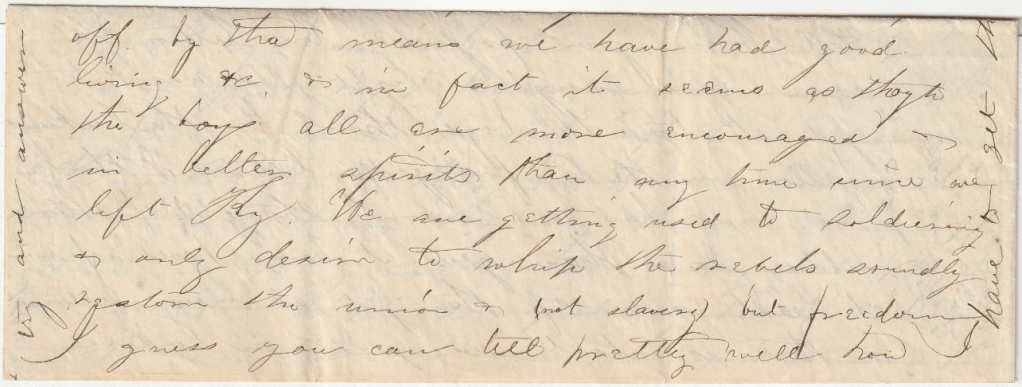 off. by that means we have had good
living &c. & in fact it seems as thogh
the boys all are more encouraged &
in better spirits than any time since we
left Ky. We are getting used to soldiering
& only desire to whip the rebels soundly
restore the union & (not slavery) but freedom
I guess you can tell pretty well how
I have to get
try and answer